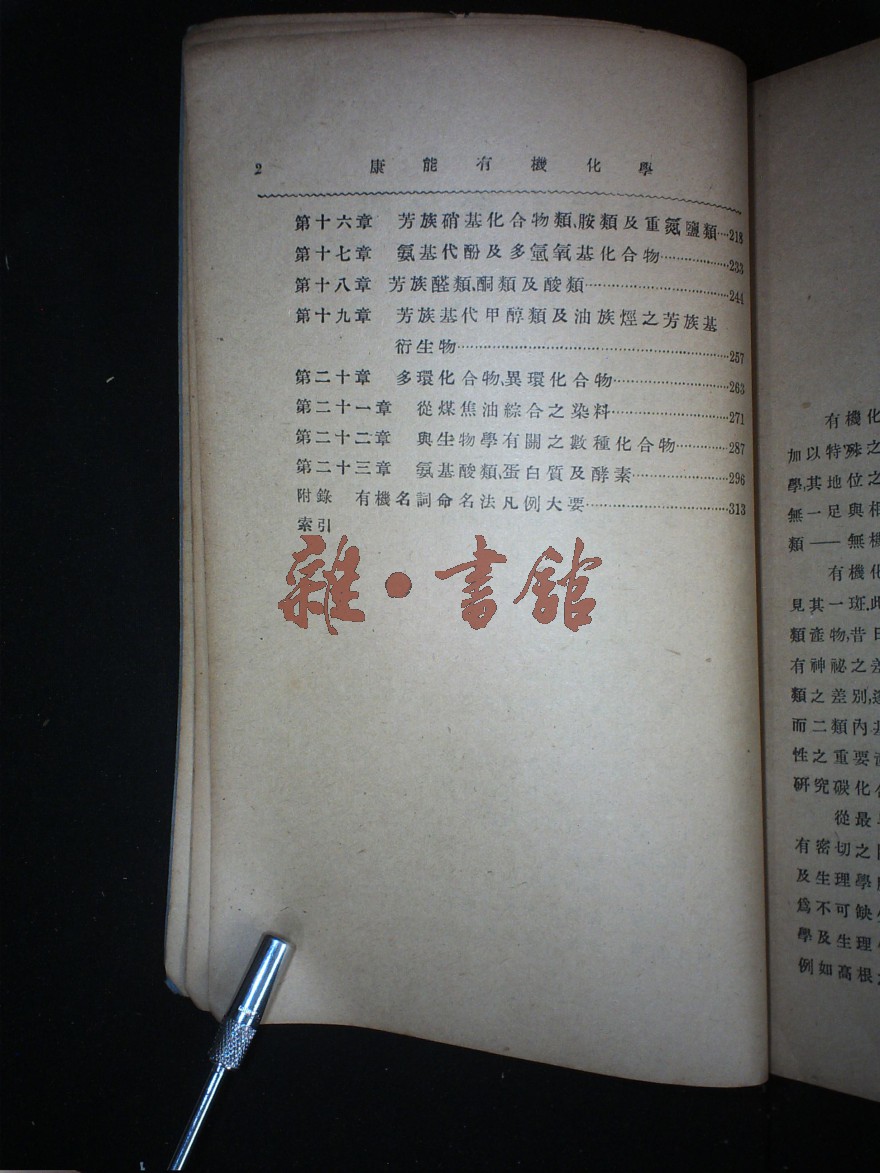 2 康能有機化學
第十六章 芳族硝基化合物類、胺類及重氮鹽類…218
第十七章 氨基代酚及多氫氧基化合物……………233
第十八章 芳族醛類、酮類及酸類……………………244
第十九章 芳族基代甲醇類及油族烴之芳族基
衍生物………………………………………257
第二十章 多環化合物、異環化合物…………………263
第二十一章 從煤焦油綜合之染料……………………271
第二十二章 與生物學有關之數種化合物…………287
第二十三章 氨基酸類、蛋白質及酵素………………296
附錄 有機名詞命名法凡例大要……………………313
索引
雜·書館
有機化
加以特殊之
學,其地位之
無一足與相
類——無機
有機化
見其一斑,此
類產物,昔日
有神祕之差
類之差別,
而二類內基
性之重要
研究碳化合
從最
有密切之
及生理學
爲不可缺
學及生理
例如高根